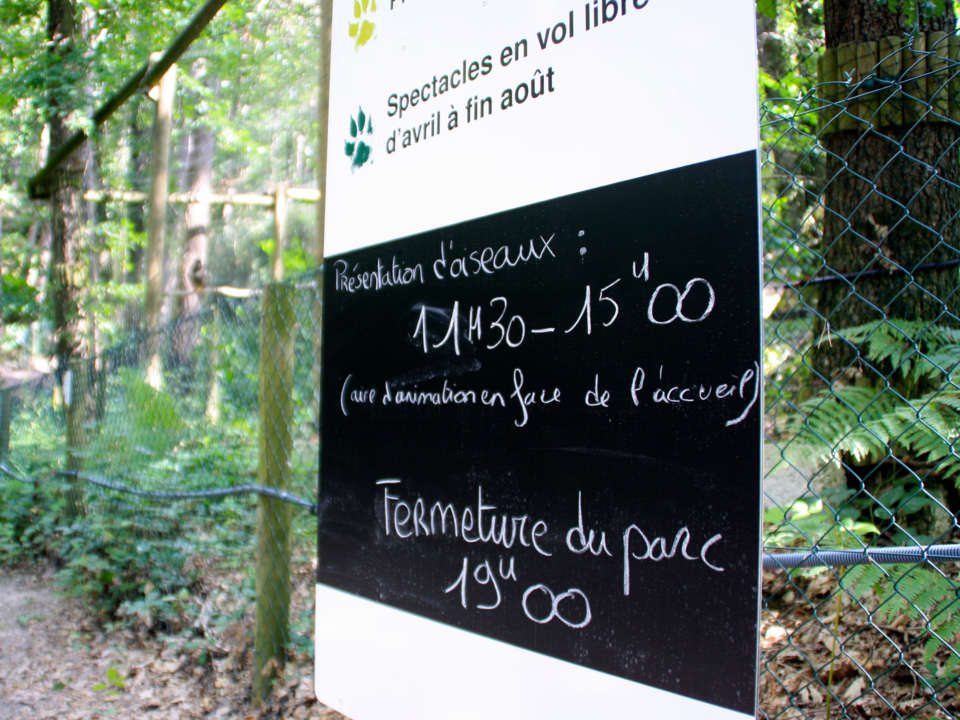 Spectacles en vol libre
d'avril à fin août
Présentation d'oiseaux :
11H30 - 15H00
(aire d'animation en face de l'accueil)
Fermeture du parc
19H00